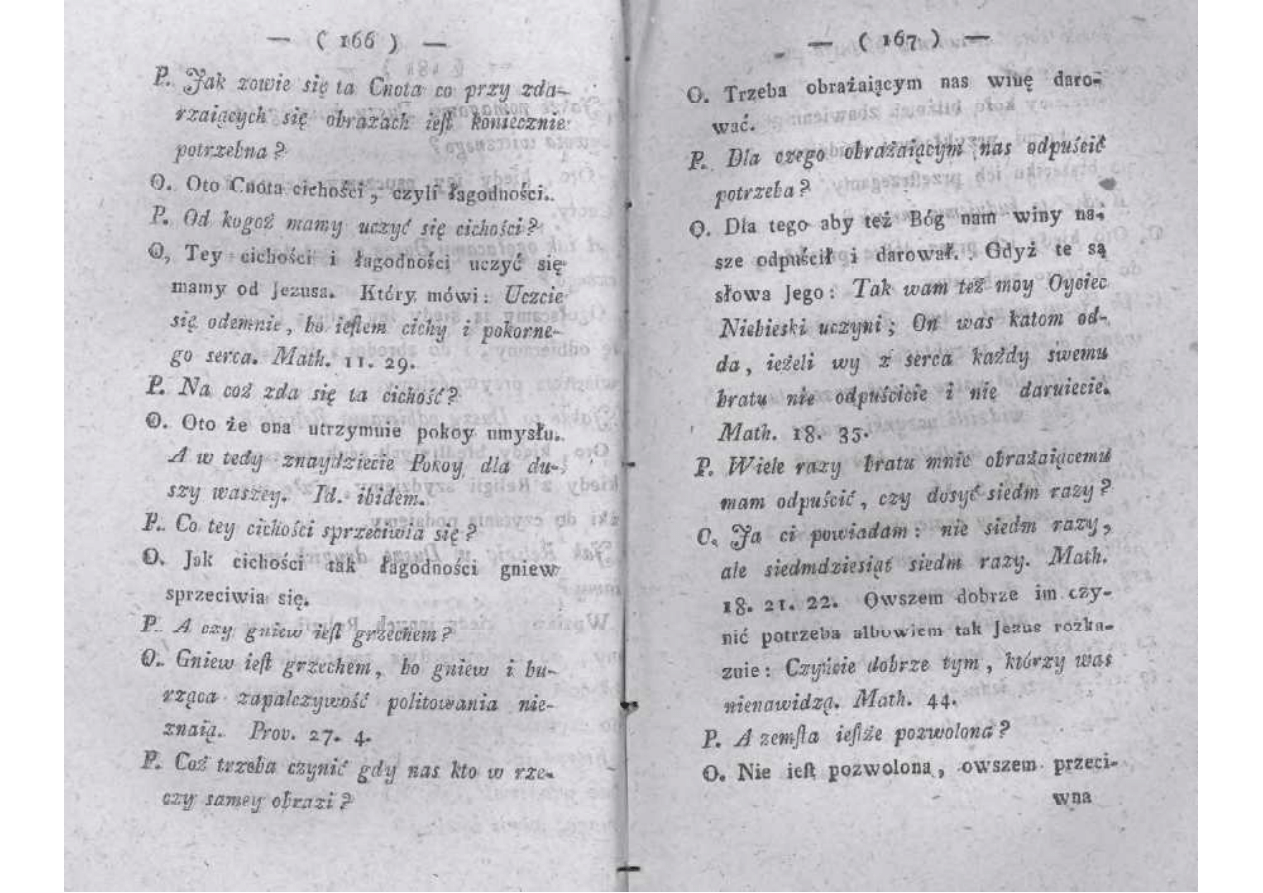 — ( 166 ) —
P. Jak zowie się ta Cnota co przy zda-
rzaiących się obrazach ieſt koniecznie
potrzebna?
O. Oto Cnota cichości, czyli łagodności.
P. Od kogoż mamy uczyć się cichości?
O, Tey cichości i łagodności uczyć się
mamy od Jezusa. Który mówi: Uczcie
się odemnie, bo ieſtem cichy i pokorne-
go serca. Math. 11. 29.
P. Na coż zda się ta cichość?
O. Oto że ona utrzymuie pokoy umysłu.
A w tedy znaydziecie Pokoy dla du-
szy waszey. Id. ibidem.
P. Co tey cichości sprzeciwia się?
O. Jak cichości tak łagodności gniew
sprzeciwia się.
P. A czy gniew ieſt grzechem?
O. Gniew ieſt grzechem, bo gniew i bu-
rząca zapalczywość politowania nie-
znaią. Prov. 27. 4.
P. Coż trzeba czynić gdy nas kto w rze-
czy samey obrazi?
— ( 167 ) —
O. Trzeba obrażaiącym nas winę daro-
wać.
P. Dla czego obrażaiącym nas odpuścić
potrzeba?
O. Dla tego aby też Bóg nam winy na-
sze odpuścił i darował. Gdyż te są
słowa Jego: Tak wam też moy Oyciec
Niebieski uczyni; On was katom od-
da, ieżeli wy z serca każdy swemu
bratu nie odpuścicie i nie daruiecie.
Math. 18. 35.
P. Wiele razy bratu mnie obrażaiącemu
mam odpuścić, czy dosyć siedm razy?
O. Ja ci powiadam: nie siedm razy,
ale siedmdziesiąt siedm razy. Math.
18. 21. 22. Owszem dobrze im czy-
nić potrzeba albowiem tak Jezus rozka-
zuie: Czyńcie dobrze tym, którzy was
nienawidzą. Math. 44.
P. A zemſta ieſtże pozwolona?
O. Nie ieſt pozwolona, owszem przeci-
wna